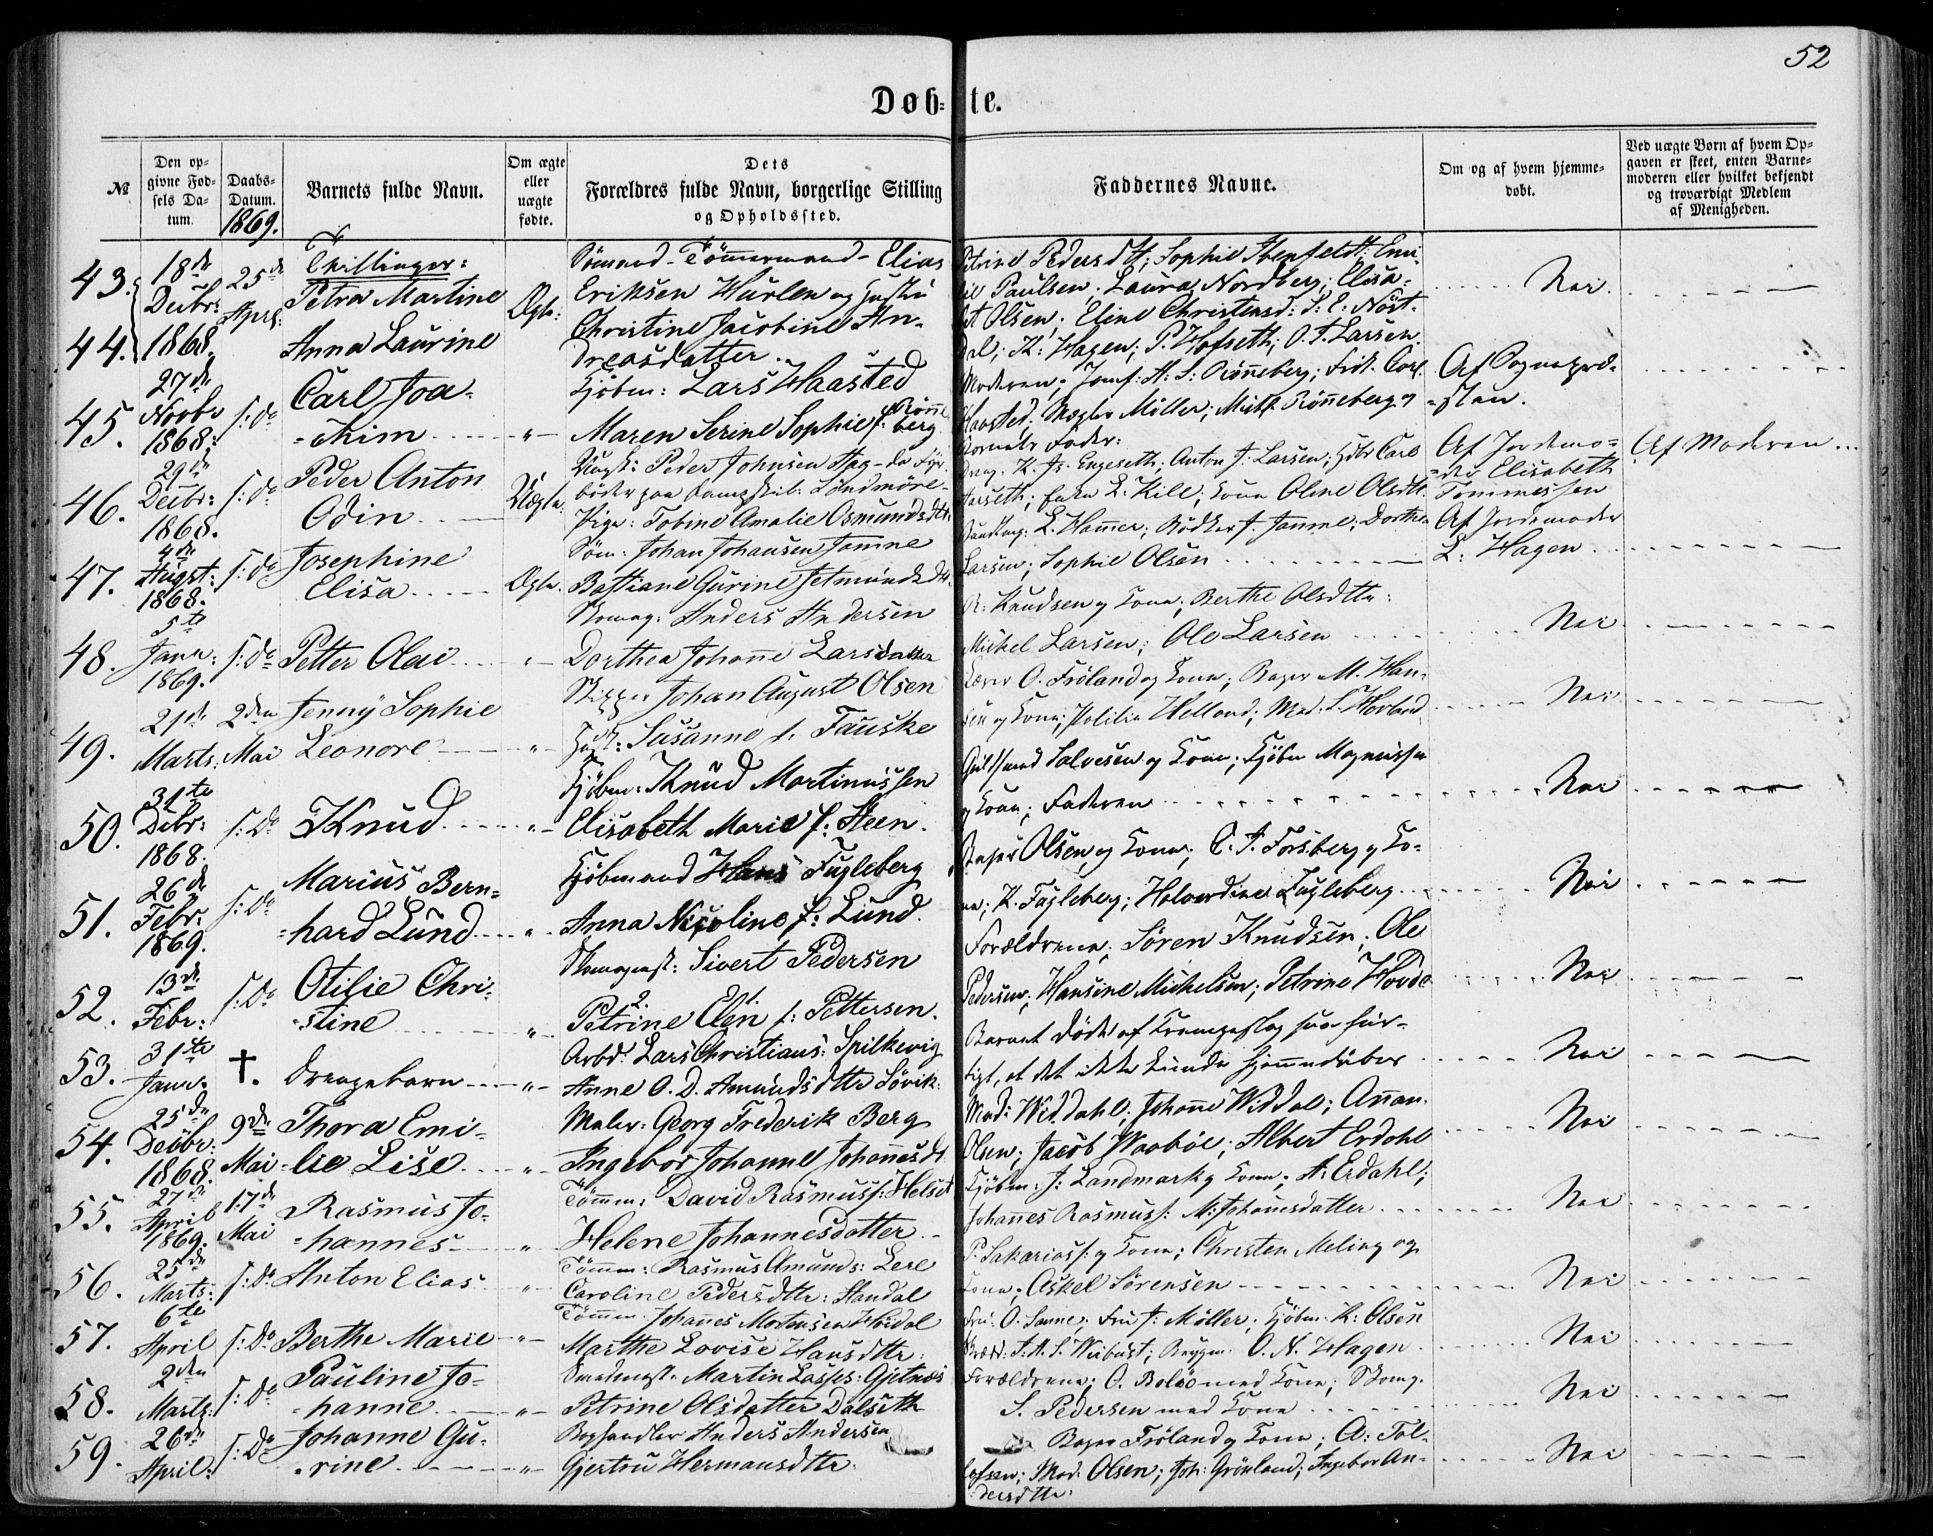 52
Døb= te.
№
Den opgivne Fødsels Datum.
Daabs-Datum. 1869.
Barnets fulde Navn.
Om ægte eller uægte fødte.
Dets Forældres fulde Navn, borgerlige Stilling og Opholdssted.
Faddernes Navne.
Om og af hvem hjemmedøbt.
Ved uægte Børn af hvem Opgaven er skeet, enten Barnemoderen eller hvilket bekjendt og troværdigt Medlem af Menigheden.
43. 44. 18de Decbr: 1868. 25de April Tvillinger: Petra Martine Anna Laurine Ægte:
Sömand-Tömmermand-Elias
Eriksen Hurlen og Hustru
Christine Jacobine An-
dreasdatter.
Petrine Pedersd
Paulsen; Laura Nordberg; Elisa-
bet Olsen; Eline Christensd: S. E. Nöst-
dal; K: Hagen; P. Hofseth; O. A. Larsen.
Nei.
45. 27de Novbr 1868. s: do Carl Joa-
-kim
Kjöbm: Lars Haasted
Maren Serine Sophie f: Rönneberg
Moderen; Jomf: A. S: Rönneberg; Frk. Carl.
Haasted; Mægler Möller; Rönneberg og
Barnets Fader:
Af Sognepræ-
-sten.
46. 29de Decbr: 1868. s: do Peder Anton
Odin Uægte:
Ungk: Peder Johnsen Hag-da Fyr-
böder paa Dampskib: Söndmöre
Pige: Tobine Amalie Osmundsdtr.
Engeseth; Anton J. Larsen;
L. Kill; Kona Oline Olsdtr.
Af Jordemo-
-der Elisabeth
Tommessen
Af Moderen
47. 4de August: 1868. s: do Josephine
Elisa Ægte.
Söm: Johan Johansen Jamne
Bastiane Gurine Jetmundsdtr.
L. Hammer; Bödker J. Jamne; Dorthea
Larsen; Sophie Olsen
Af Jordemoder
L: Hagen
48. 5te Janr: 1869. s: do Petter Olai
Skomag: Anders Andersen
Dorthea Johanne Larsdatter
Knudsen og Kona; Berthe Olsdtr:
Michel Larsen; Ole Larsen
Nei
49. 21de Marts: 2den Mai Jenny Sophie
Leonore
Skipper Johan August Olsen
Hust: Susanne f. Fauske
O. Fröland og Kona; Bager M. Han-
sen og Kona; Helland; Mad: S. Hovland
Nei
50. 31te Decbr: 1868. s: do Knud
Kjöbm: Knud Martinussen
Elisabeth Marie f: Steen.
Guldsmed Salvesen og Kona; Kjöbm Magnussen
og Kona; Faderen
Nei
51. 26de Febr: 1869. s: do Marius Bern-
-hard Lund
Kjöbmand Hans Fugleberg
Anna Nicoline f: Lund.
Bager Olsen og Kona; C. A. Forsberg og Ko-
na; K. Fugleberg; Halvardine Fugleberg
Nei
52. 13de Febr: s: do Otilie Chri-
-stine
Skomagerst: Sivert Pedersen
2. 1.
Petrine Elen f: Pettersen.
Forældrene; Sören Knudsen; Ole
Pedersen; Hansine Michelsen; Petrine Hovde
Nei
53. 31te Janr. †. Drengebarn
Arbd: Lars Christians: Spilkevig
Anne O. D. Amundsdtr Sövik:
Barnet döde af Krampeslag saa hur-
tigt, at det ikke kunde hjemmedöbes
Nei
54. 25de Decbr: 1868. 9de Mai Thora Emi-
-lie Lise
Maler: Georg Frederik Berg
Ingebor Johanne Johannesdt
Mad: Widdahl; Johanne Widdal; Annan.
Olsen; Jacob Waaböe; Albert Erdahl
Nei
55. 27de April 1869. 17de Mai Rasmus Jo-
-hannes
Tömm: David Rasmuss: Helset
Helene Johannesdatter
Kjöbm: J: Landmark og Kona; A: Erdahl;
Johannes Rasmuss: M: Johannesdatter
Nei
56. 25de Marts: s: do Anton Elias
Tömm: Rasmus Amunds: Lere
Caroline Pedersdtr: Standal
P. Sakariass: og Kona; Christen Meling og
Kona; Askel Sörensen
Nei
57. 6te April s: do Berthe Marie
Tömm. Johannes Mortensen Hoidal
Marthe Lovise Hansdtr:
Fru: O. Sanne; Fru J: Möller; Kjöbm. K: Olsen
S. A. S. Weibust; O. N. Hagen
Nei
58. 2den Marts: s: do Pauline Jo-
-hanne
Smedemest: Martin Lasses: Gjetnes
Petrine Olsdatter Dalseth
Forældrene; O. Bolsö med Kona; Skomg.
S. Pedersen med Kona
Nei
59. 26de April: s: do Johanne Gu-
-rine
Boghandler Anders Andersen
Gjertru Hermansdtr.
Bager Fröland og Kona; A: Tol-
lefsen; Mad: Olsen; Joh: Grönland; Ingebor An-
dersdtr.
Nei